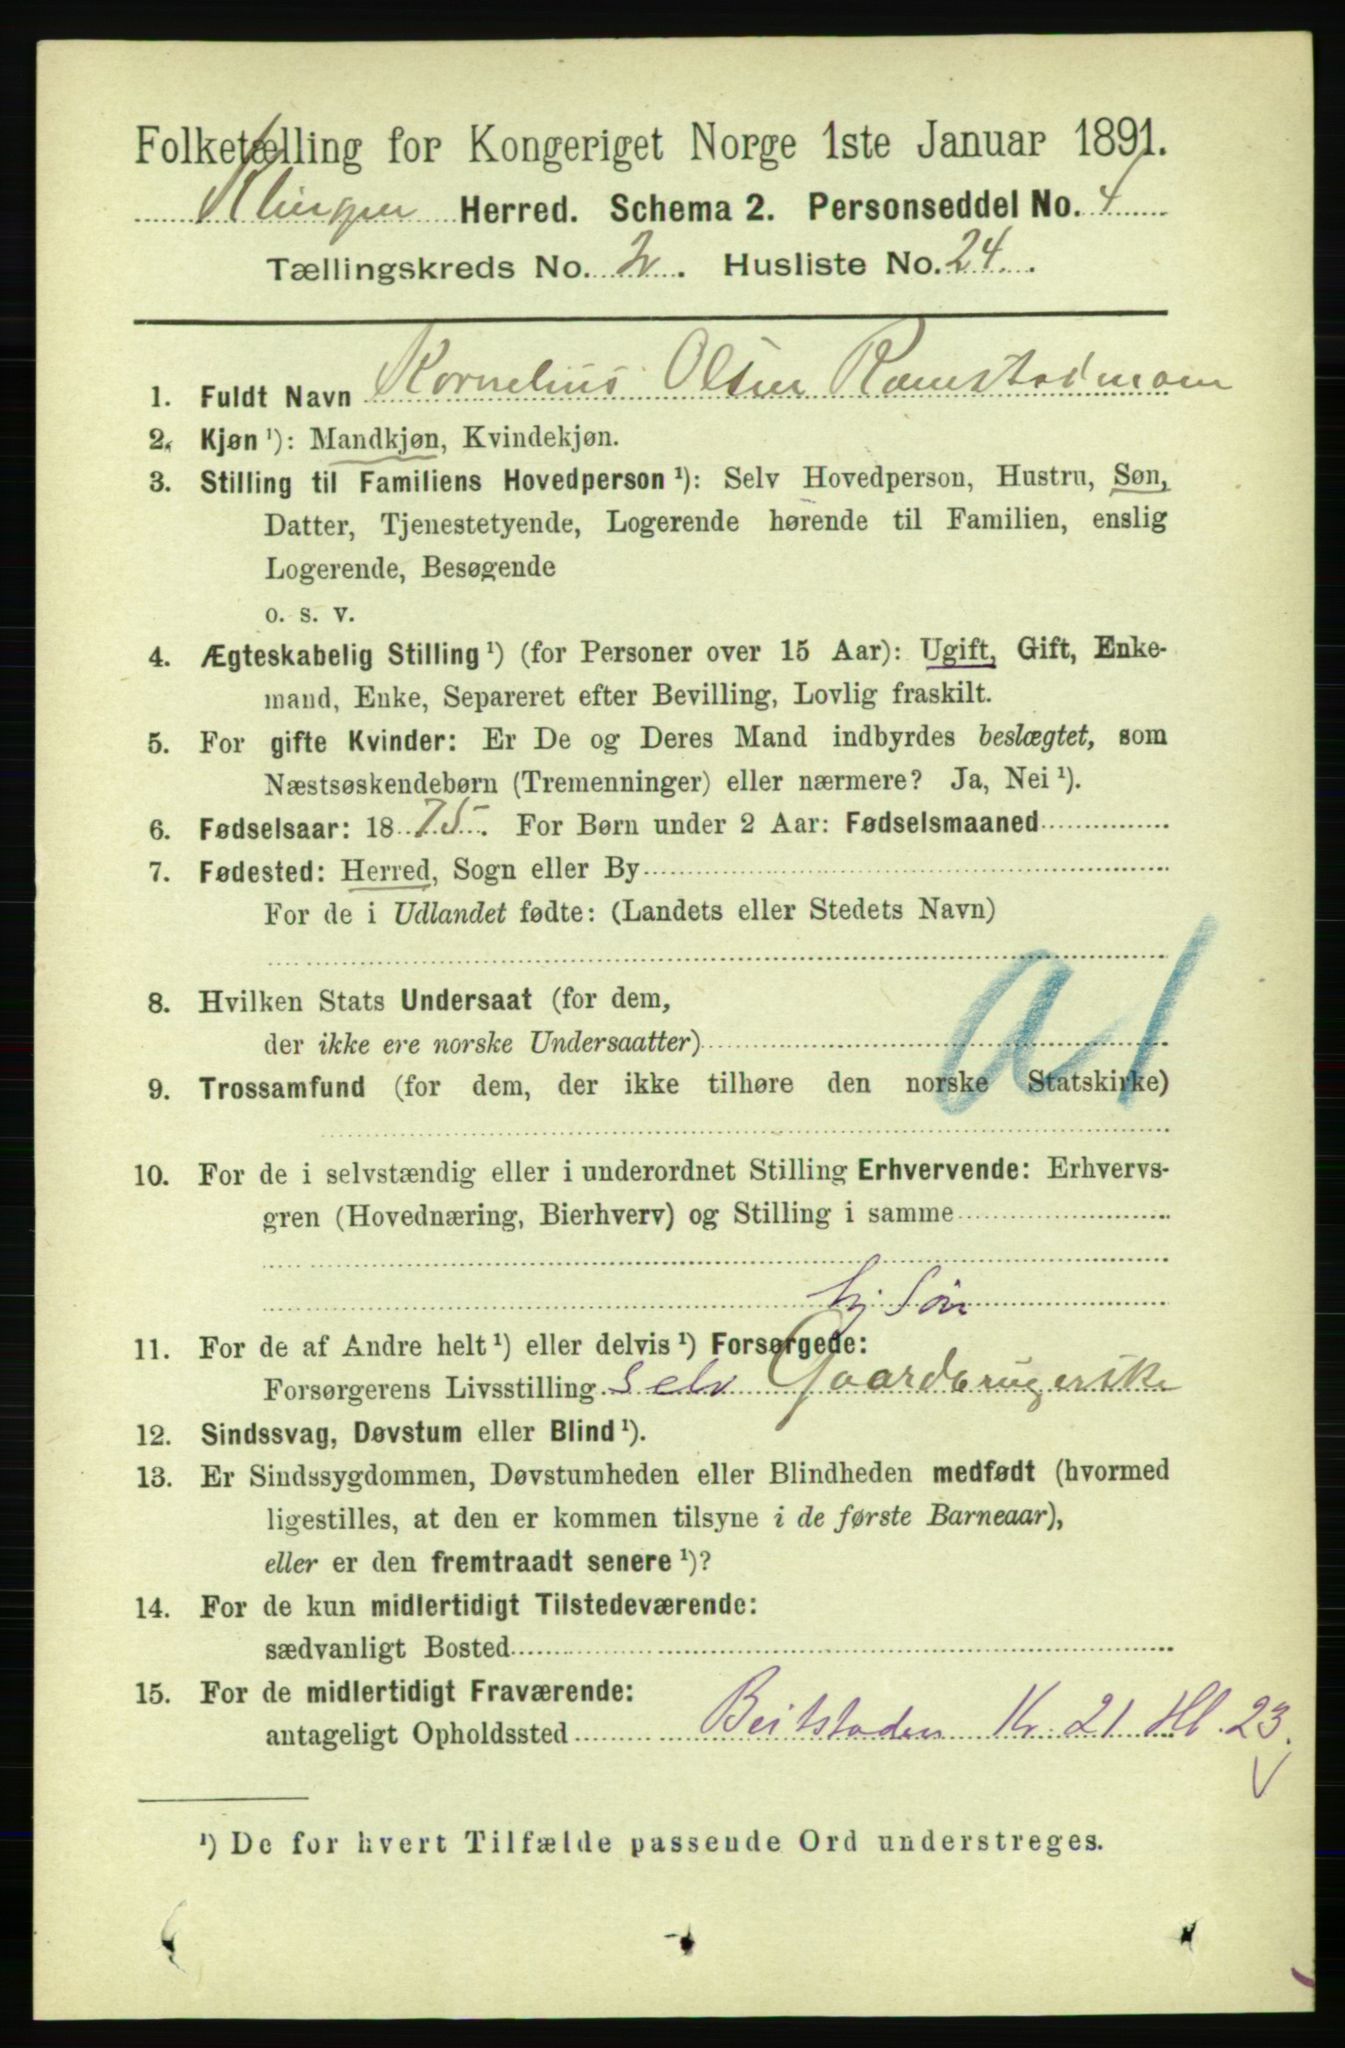 Folketælling for Kongeriget Norge 1ste Januar 1891.
Klingen Herred. Schema 2. Personseddel No. 4
Tællingskreds No. 2. Husliste No. 24.
1. Fuldt Navn Kornelius Olsen Ramstadmoen
2. Kjøn ¹): Mandkjøn, Kvindekjøn.
3. Stilling til Familiens Hovedperson ¹): Selv Hovedperson, Hustru, Søn,
Datter, Tjenestetyende, Logerende hørende til Familien, enslig
Logerende, Besøgende
o. s. v.
4. Ægteskabelig Stilling ¹) (for Personer over 15 Aar): Ugift, Gift, Enke-
mand, Enke, Separeret efter Bevilling, Lovlig fraskilt.
5. For gifte Kvinder: Er De og Deres Mand indbyrdes beslægtet, som
Næstsøskendebørn (Tremenninger) eller nærmere? Ja, Nei ¹).
6. Fødselsaar: 1875. For Børn under 2 Aar: Fødselsmaaned
7. Fødested: Herred, Sogn eller By
For de i Udlandet fødte: (Landets eller Stedets Navn)
a1
8. Hvilken Stats Undersaat (for dem,
der ikke ere norske Undersaatter)
9. Trossamfund (for dem, der ikke tilhøre den norske Statskirke)
10. For de i selvstændig eller i underordnet Stilling Erhvervende: Erhvervs-
gren (Hovednæring, Bierhverv) og Stilling i samme
hj Søn
11. For de af Andre helt ¹) eller delvis ¹) Forsørgede:
Forsørgerens Livsstilling Selv Gaardbrugerske
12. Sindssvag, Døvstum eller Blind ¹).
13. Er Sindssygdommen, Døvstumheden eller Blindheden medfødt (hvormed
ligestilles, at den er kommen tilsyne i de første Barneaar),
eller er den fremtraadt senere ¹)?
14. For de kun midlertidigt Tilstedeværende:
sædvanligt Bosted
15. For de midlertidigt Fraværende:
antageligt Opholdssted Beitstaden Kr. 21 Hl. 23.
¹) De for hvert Tilfælde passende Ord understreges.